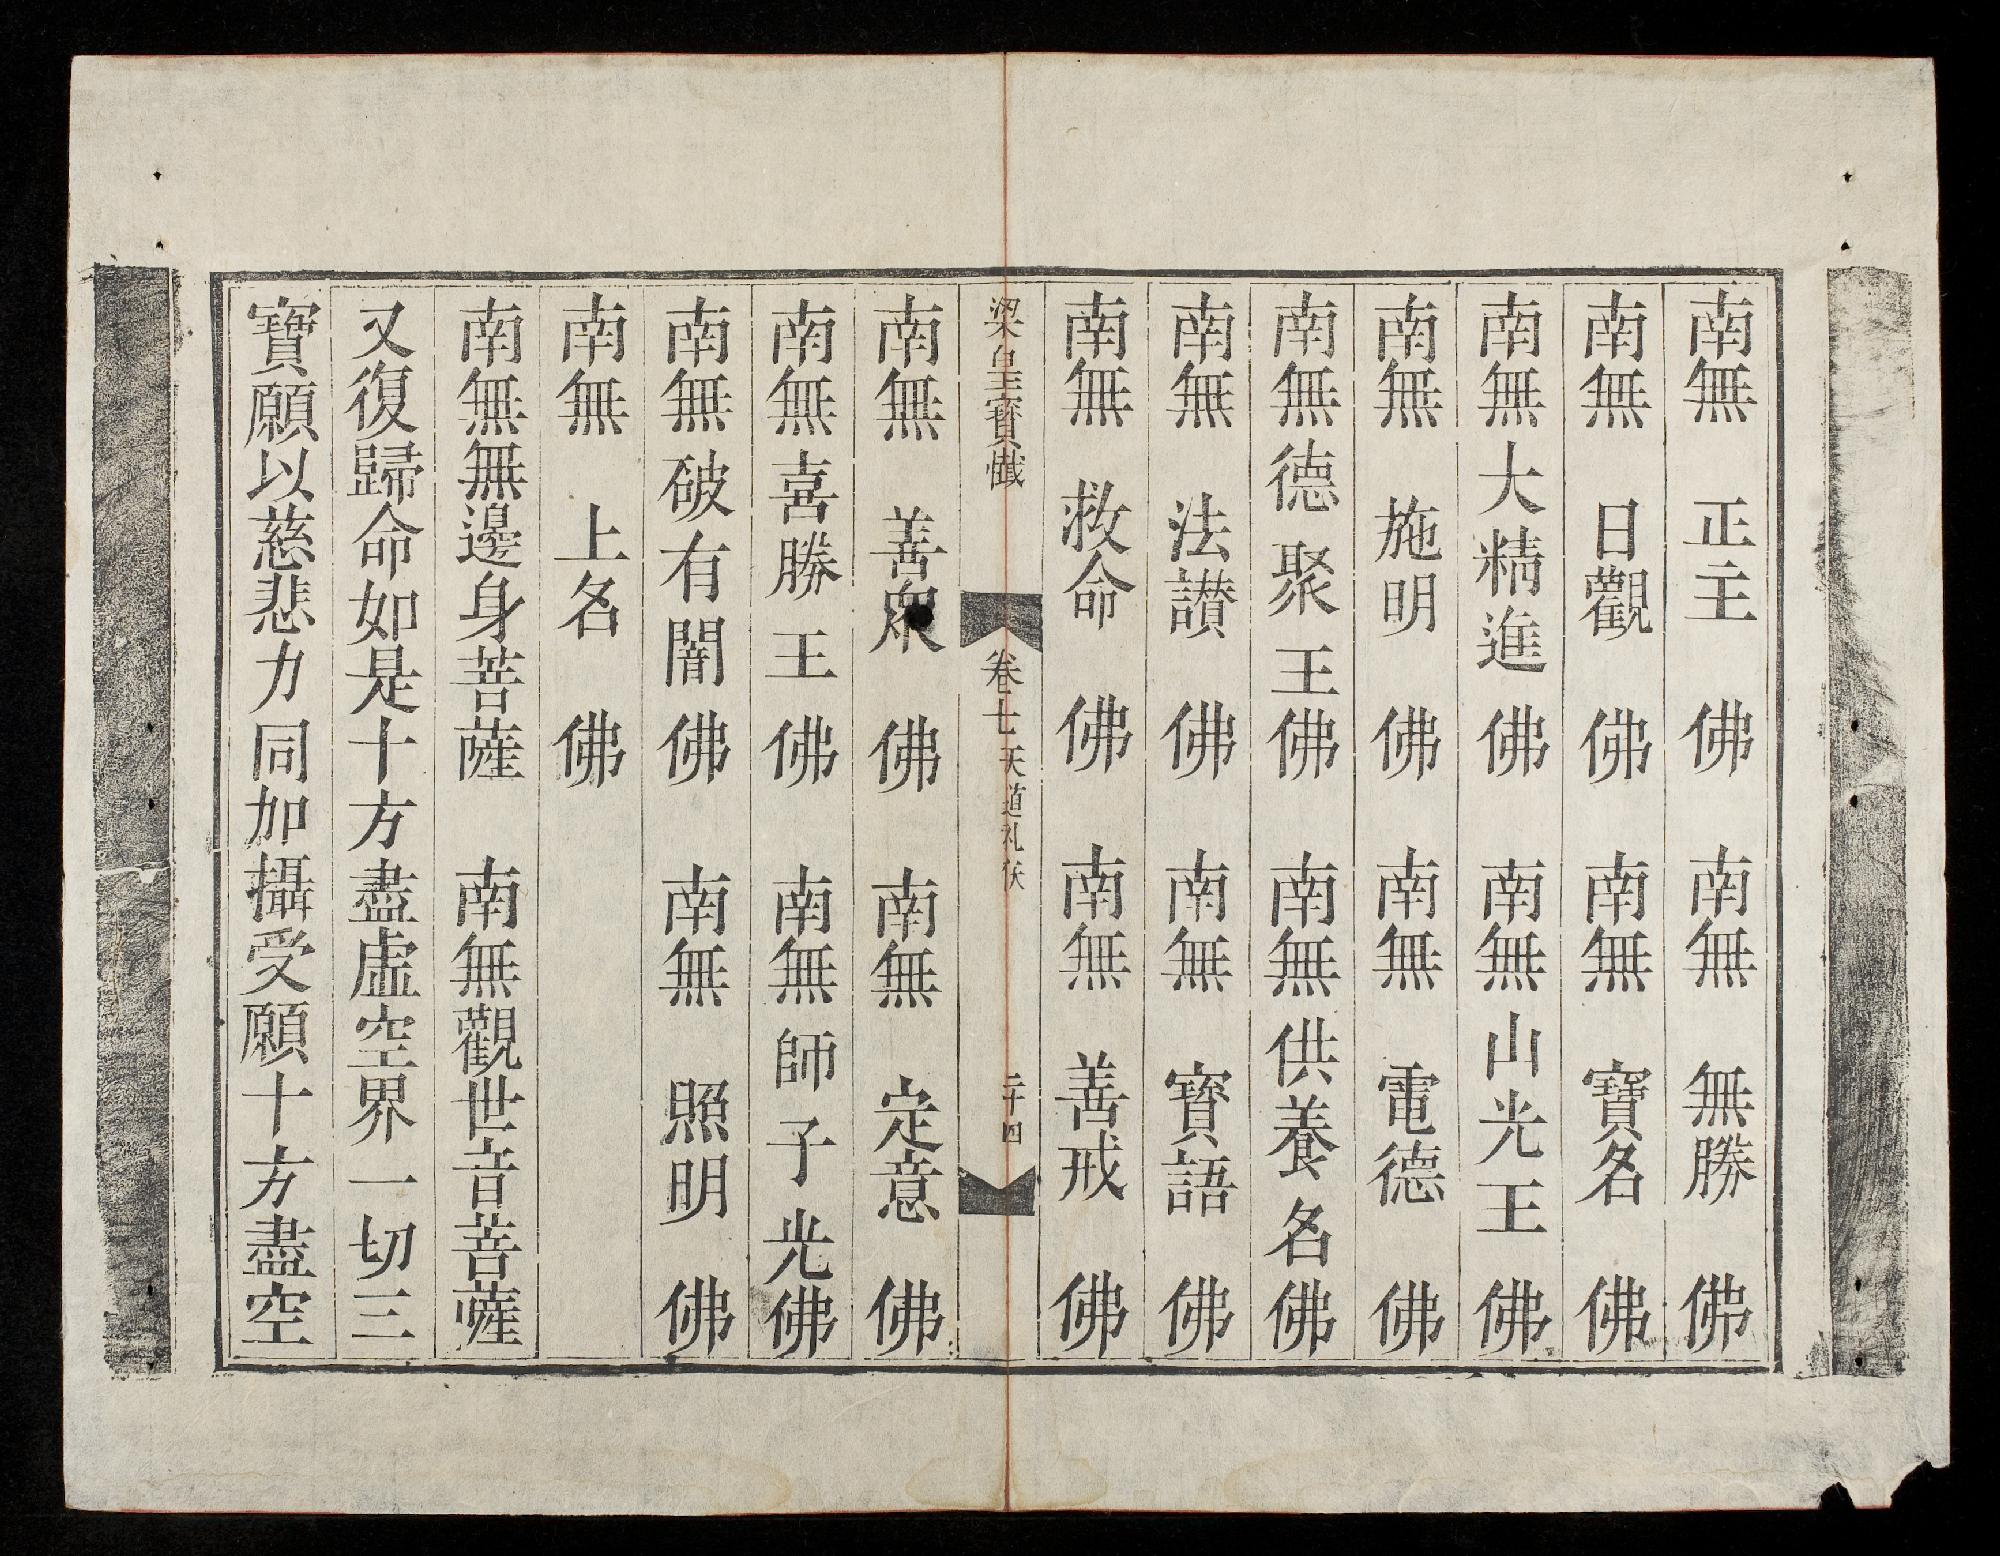 南無正主佛南無無勝佛
南無日觀佛南無寶名佛
南無大精進佛南無山光王佛
南無施明佛南無電德佛
南無德聚王佛南無供養名佛
南無法讃佛南無寳語佛
南無救命佛南無善戒佛
梁皇寳懺 卷七 天道礼佛 二十四
南無善衆佛南無定意佛
南無喜勝王佛南無師子光佛
南無破有闇佛南無照明佛
南無上名佛
南無無邊身菩薩 南無觀世音菩薩
又復歸命如是十方盡虛空界一切三
寶願以慈悲力同加攝受願十方盡空